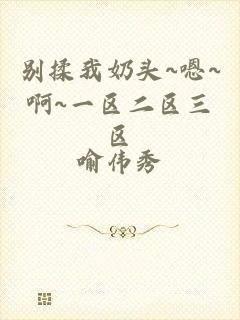 别揉我奶头~嗯~
啊~一区二区三
区
喻伟秀